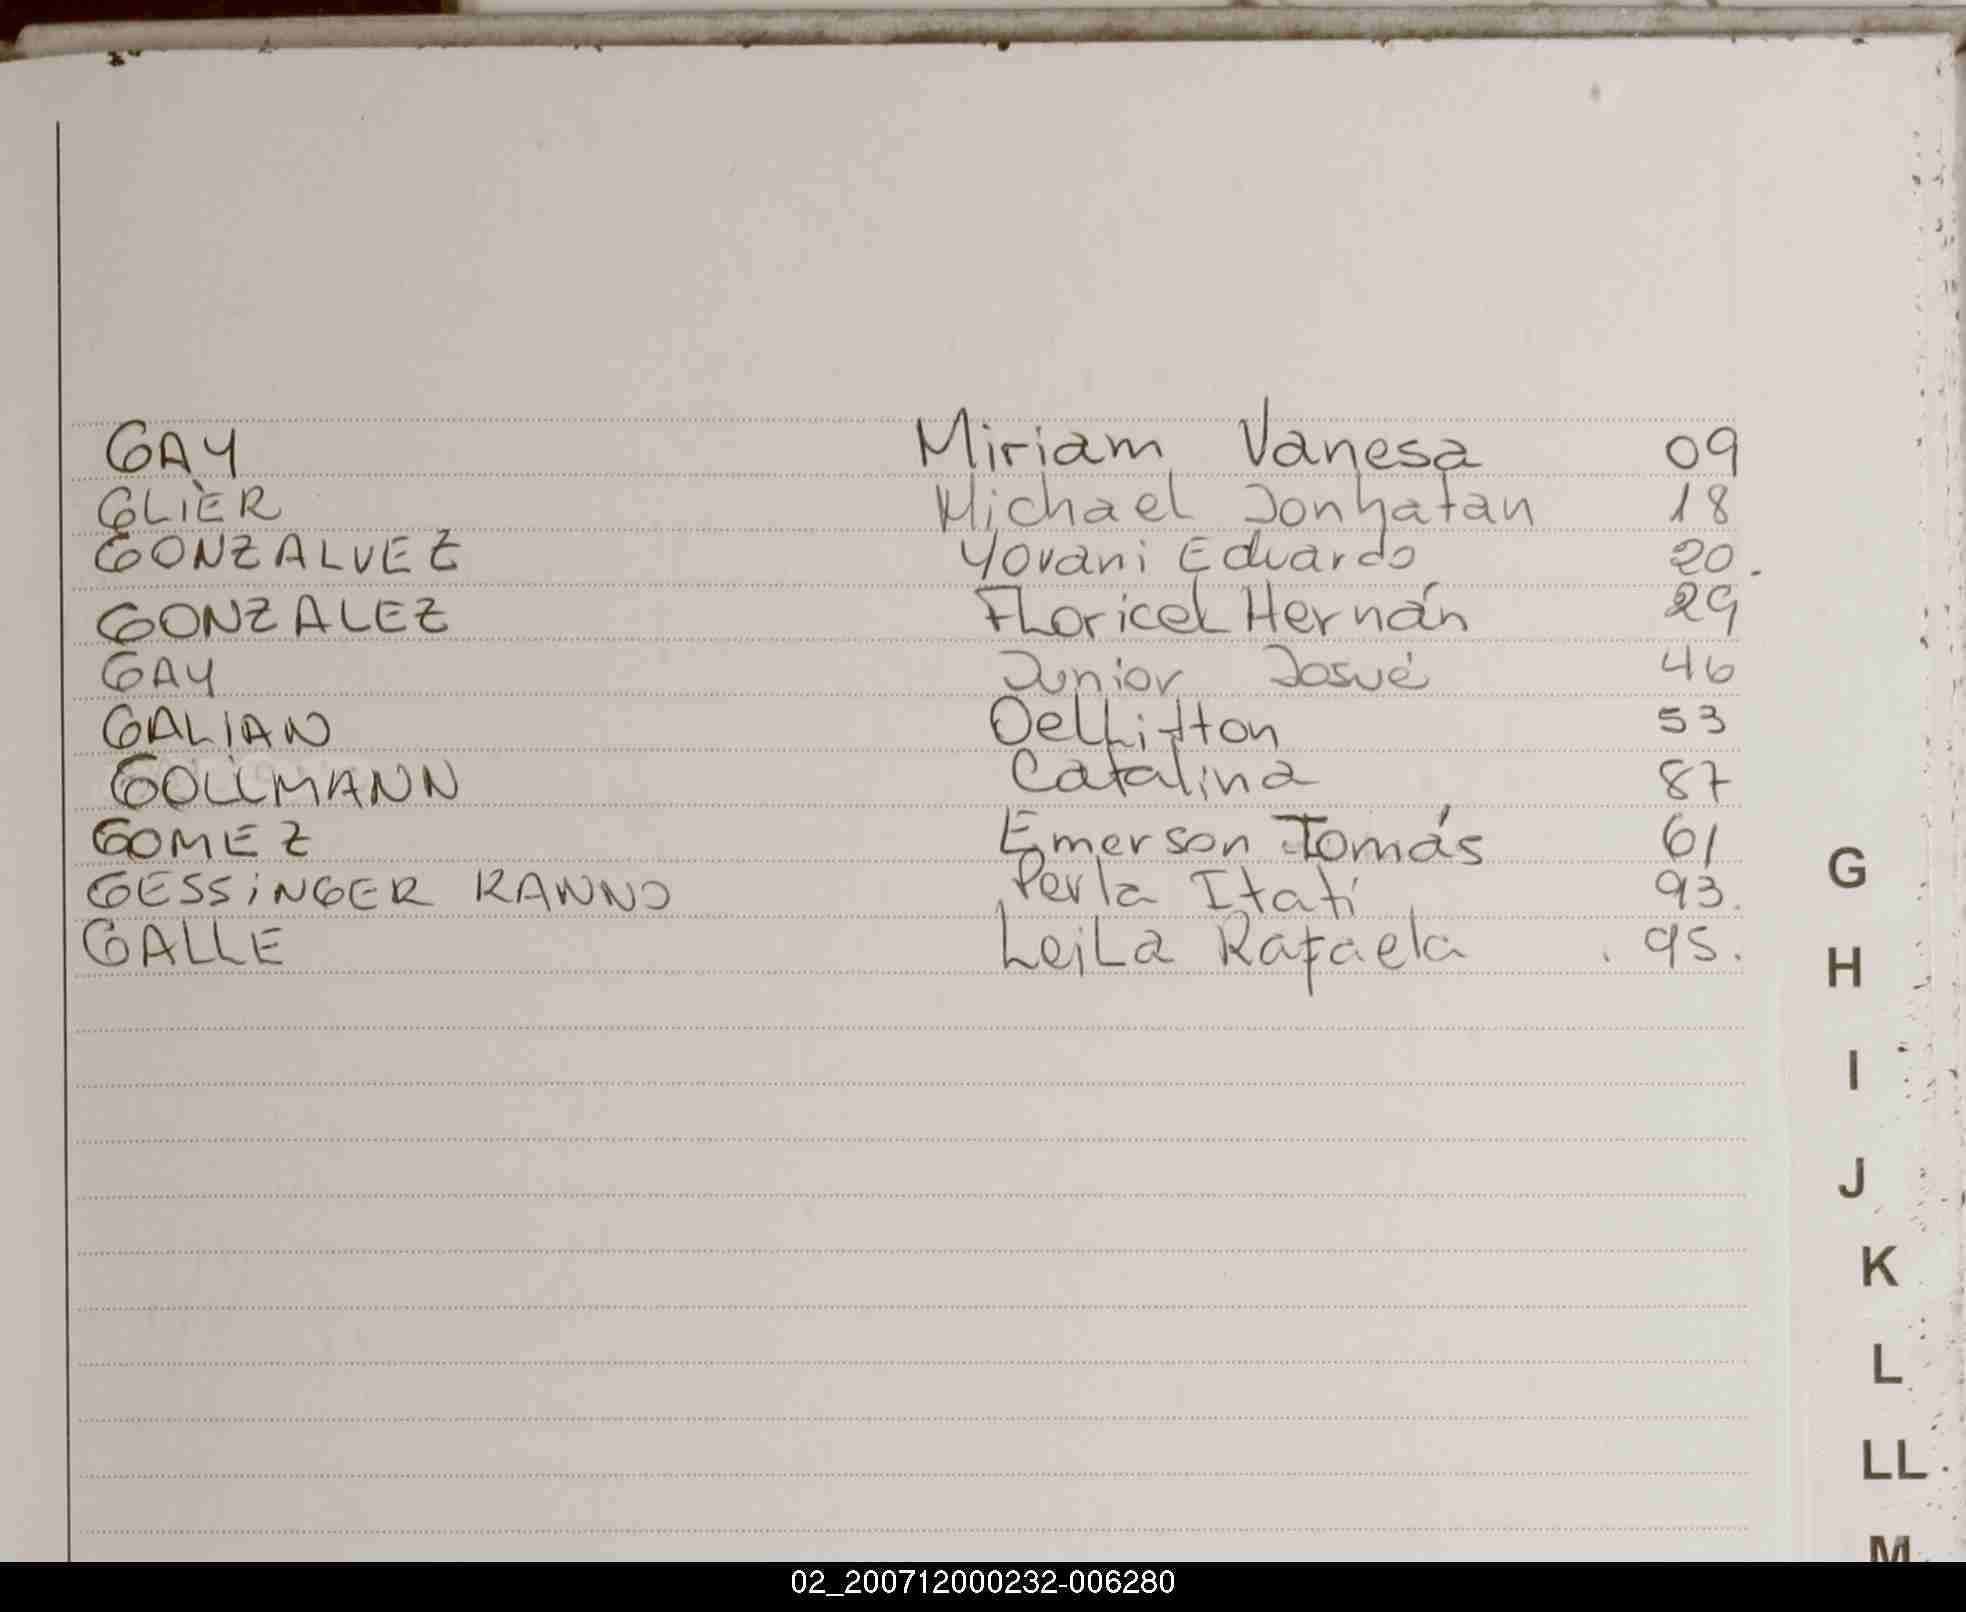 GAY Miriam Vanesa 09
GLIER Michael Jonhatan 18
GONZALVEZ Yovani Eduardo 20.
GONZALEZ Floricel Hernán 29
GAY Junior Josué 46
GALIAN 53
GOLLMANN Catalina 87
GOMEZ Emerson Tomás 61
GESSINGER RANNO Perla Itatí 93.
GALLE Leila Rafaela 95.
G
H
I
J
K
L
LL
M
02_200712000232-006280